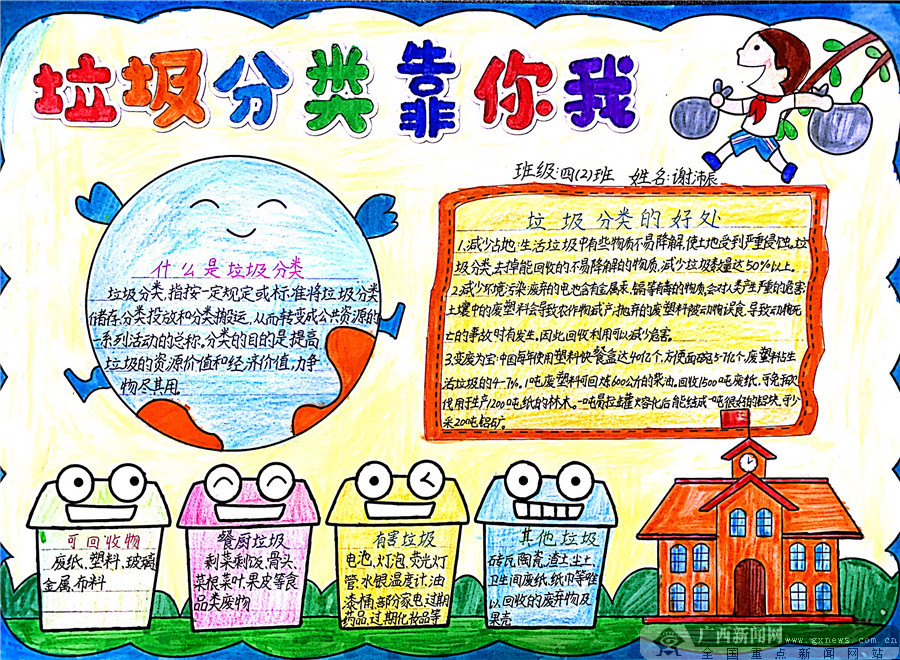 垃圾分类靠你我
班级:四(2)班 姓名:谢沛辰
什么是垃圾分类
垃圾分类,指按一定规定或标准将垃圾分类
储存,分类投放和分类搬运,从而转变成公共资源的
一系列活动的总称。分类的目的是提高
垃圾的资源价值和经济价值,力争
物尽其用。
垃圾分类的好处
1.减少占地:生活垃圾中有些物质不易降解,使土地受到严重侵蚀。垃
圾分类,去掉能回收的不易降解的物质,减少垃圾数量达50%以上。
2.减少环境污染:废弃的电池含有金属汞、镉等有毒的物质,会对人类产生严重的危害
土壤中的废塑料会导致农作物减产;抛弃的废塑料被动物误食,导致动物死亡
的事故时有发生。因此回收利用可以减少危害。
3.变废为宝:中国每年使用塑料快餐盒达40亿个,方便面碗5-7亿个,废塑料占生
活垃圾的4-7%。1吨废塑料可回炼600公斤的柴油。回收1500吨废纸,可免于砍
伐用于生产1200吨纸的林木。一吨易拉罐熔化后能结成一吨很好的铝块,可少
采20吨铝矿。
可回收物
废纸、塑料、玻璃
金属、布料
餐厨垃圾
剩菜剩饭、骨头、
菜根菜叶、果皮等食
品类废物
有害垃圾
电池、灯泡、荧光灯
管、水银温度计、油
漆桶、部分家电、过期
药品、过期化妆品等
其他垃圾
砖瓦陶瓷、渣土、尘土、
卫生间废纸、纸巾等难
以回收的废弃物及
果壳
广西新闻网
www.gxnews.com.cn
全国重点新闻网站